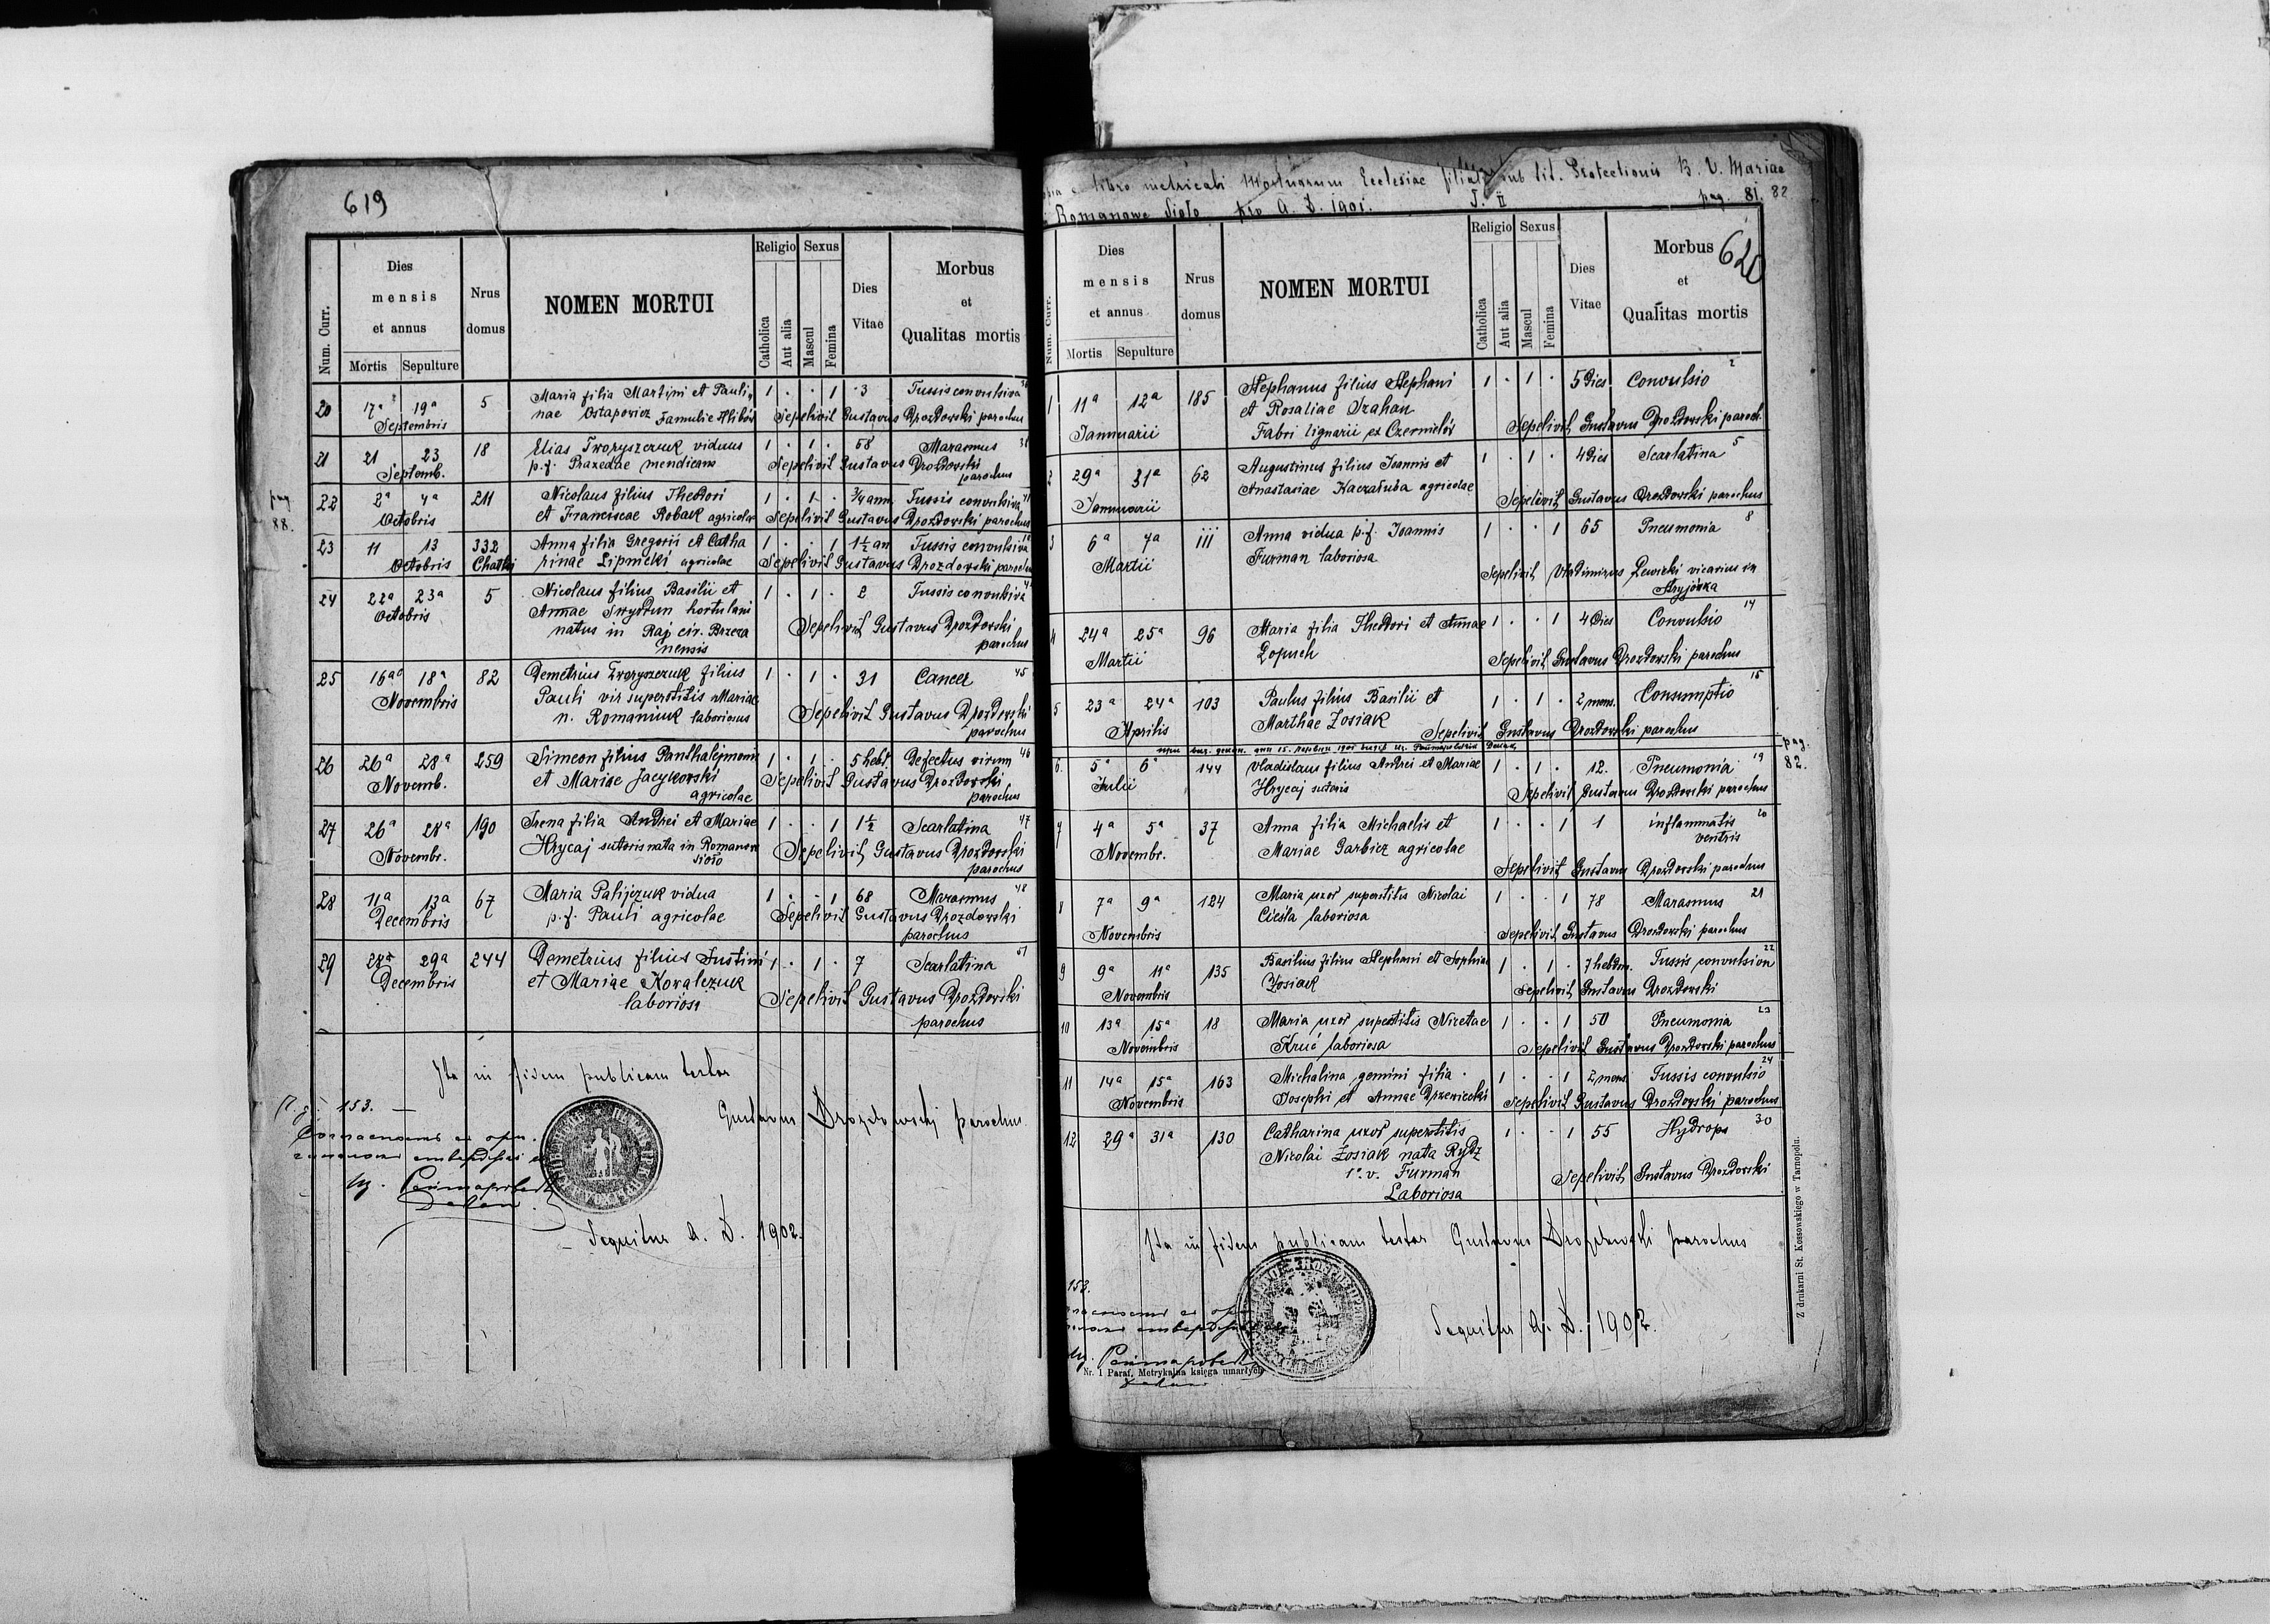 619
Num. Curr.
Dies mensis et annus
Mortis Sepulture
Nrus domus
NOMEN MORTUI
Religio Sexus
Catholica Aut alia Mascul Femina
Dies Vitae
Morbus et Qualitas mortis
20 17ª 19ª 5 Maria filia Martini et Pauli- 1 · · 1 3 Tussis convulsiva
Septembris nae Ostapowicz Famuli e Hlibów Sepelivit Gustavus Drozdowski parochus
21 21 23 18 Elias Tworyszczuk viduus 1 · 1 · 58 Marasmus
Septemb. p. f. Praxedae mendicans Sepelivit Gustavus Drozdowski
parochus
pag 88.
22 2ª 4ª 211 Nicolaus filius Theodori 1 · 1 · 3/4 ann. Tussis convulsiva
Octobris et Franciscae Roback agricolae Sepelivit Gustavus Drozdowski parochus
23 11 13 332 Anna filia Gregorii et Catha 1 · · 1 1½ an Tussis convulsiva
Octobris Chatki rinae Lipnicki agricolae Sepelivit Gustavus Drozdowski parochus
24 22ª 23ª 5 Nicolaus filius Basilii et 1 · 1 · 2 Tussis convulsiva
Octobris Annae hortulani
natus in Raj cir. Brzeza Sepelivit Gustavus Drozdowski
nensis parochus
25 16ª 18ª 82 Demetrius Tworyszczuk filius 1 · 1 · 31 Cancer 45
Novembris Pauli vir superstitis Mariae
n. Romaniuk laboriosus Sepelivit Gustavus Drozdowski
parochus
26 26ª 28ª 259 Simeon filius Panthalejmonis 1 · 1 · 5 hebd. Defectus virium 46
Novemb. et Mariae Jacykowski Sepelivit Gustavus Drozdowski
agricolae parochus
27 26ª 28ª 190 Irena filia Andrei et Mariae 1 · · 1 1½ Scarlatina 47
Novembr. Hrycaj sutoris nata in Romanowe Sepelivit Gustavus Drozdowski
sioło parochus
28 11ª 13ª 67 Maria Palijczuk vidua 1 · · 1 68 Marasmus 48
Decembris p. f. Pauli agricolae Sepelivit Gustavus Drozdowski
parochus
29 28ª 29ª 244 Demetrius filius Justini 1 · 1 · 7 Scarlatina 51
Decembris et Mariae Kowalczuk
laboriosa Sepelivit Gustavus Drozdowski
parochus
Ita in fidem publicam testor
Gustavus Drozdowski parochus
153.
Sequitur A. D. 1902.
libro metricali Mortuorum Ecclesiae filialis sub tit. Protectionis B. V. Mariae
Romanowe Sioło pro A. D. 1901. T. II pag. 81. 82
620
Num. Curr.
Dies mensis et annus
Mortis Sepulture
Nrus domus
NOMEN MORTUI
Religio Sexus
Catholica Aut alia Mascul Femina
Dies Vitae
Morbus et Qualitas mortis
1 11ª 12ª 185 Stephanus filius Stephani 1 · 1 · 5 Dies Convulsio 2
Januarii et Rosaliae Drahan
Fabri lignarii ex Czernielów Sepelivit Gustavus Drozdowski paroch.
2 29ª 31ª 62 Augustinus filius Joannis et 1 · 1 · 4 Dies Scarlatina 5
Januarii Anastasiae Kaczałuba agricolae
Sepelivit Gustavus Drozdowski parochus
3 6ª 7ª 111 Anna vidua p. f. Joannis 1 · · 1 65 Pneumonia 8
Martii Furman laboriosa
Sepelivit Vladimirus Lewicki vicarius in
Stryjówka
4 24ª 25ª 96 Maria filia Theodori et Annae 1 · · 1 4 Dies Convulsio 14
Martii Łopuch
Sepelivit Gustavus Drozdowski parochus
5 23ª 24ª 103 Paulus filius Basilii et 1 · 1 · 2 mens. Consumptio 15
Aprilis Marthae Zosiak
Sepelivit Gustavus Drozdowski parochus
pag. 82.
6. 5ª 6ª 144 Vladislaus filius Andrei et Mariae 1 · 1 · 12. Pneumonia 19
Julii Hrycaj sutoris Sepelivit Gustavus Drozdowski parochus
7 4ª 5ª 37 Anna filia Michaelis et 1 · · 1 1 inflammatis 20
Novembr. Mariae Garbicz agricolae ventris
Sepelivit Gustavus Drozdowski parochus
8 7ª 9ª 124 Maria uxor superstitis Nicolai 1 · · 1 78 Marasmus 21
Novembris Cieśla laboriosa
Sepelivit Gustavus Drozdowski parochus
9 9ª 11ª 135 Basilius filius Stephani et Sophiae 1 · 1 · 7 hebdm. Tussis convulsion 22
Novembris Zosiak Sepelivit Gustavus Drozdowski
10 13ª 15ª 18 Maria uxor superstitis Nicetae 1 · · 1 50 Pneumonia 23
Novembris Kruć laboriosa Sepelivit Gustavus Drozdowski parochus
11 14ª 15ª 163 Michalina gemini filia 1 · · 1 2 mens Tussis convulsio 24
Novembris Josephi et Annae Drzewiecki Sepelivit Gustavus Drozdowski parochus
12 29ª 31ª 130 Catharina uxor superstitis 1 · · 1 55 Hydrops 30
Nicolai Zosiak nata Rydz
1º. v. Furman Sepelivit Gustavus Drozdowski
Laboriosa
Ita in fidem publicam testor Gustavus Drozdowski parochus
153.
Sequitur A. D. 1902.
Nr. 1 Paraf. Metrykalna księga umarłych
Z drukarni St. Kossowskiego w Tarnopolu.